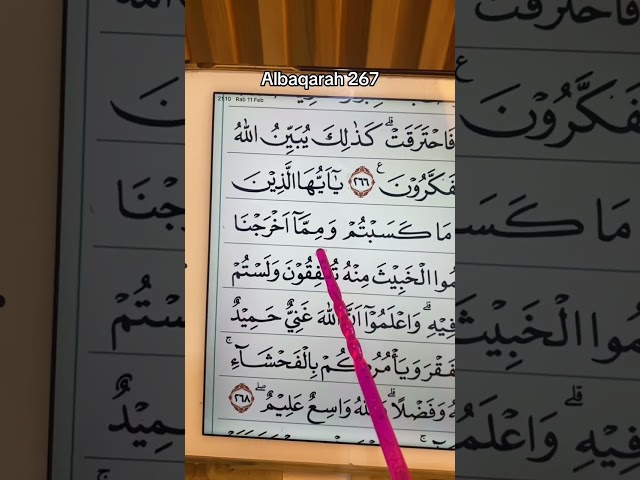 Albaqarah 267
21.10 Rab 11 Feb
فَاحْتَرَقَتْ ۗ كَذٰلِكَ يُبَيِّنُ اللّٰهُ
فَكَّرُوْنَ ࣖ ٢٦٦ يٰٓاَيُّهَا الَّذِيْنَ
مَا كَسَبْتُمْ وَمِمَّآ اَخْرَجْنَا
مُوا الْخَبِيْثَ مِنْهُ تُنْفِقُوْنَ وَلَسْتُمْ
فِيْهِ ۗ وَاعْلَمُوْٓا اَنَّ اللّٰهَ غَنِيٌّ حَمِيْدٌ
فَقْرَ وَيَأْمُرُكُمْ بِالْفَحْشَاۤءِ ۚ
هُ وَفَضْلًا ۗ وَاللّٰهُ وَاسِعٌ عَلِيْمٌ ۖ ٢٦٨